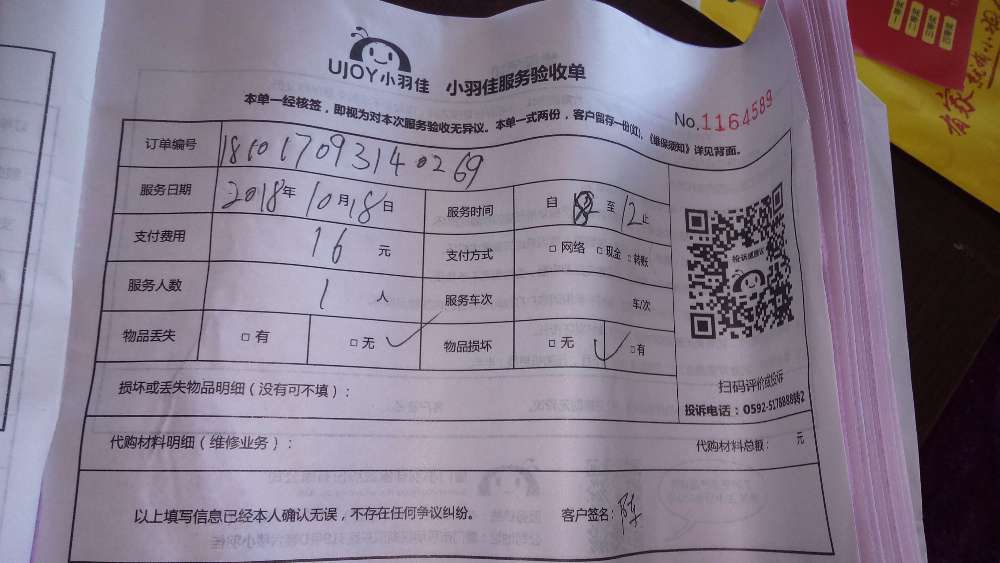 UJOY小羽佳 小羽佳服务验收单
本单一经核签，即视为对本次服务验收无异议。本单一式两份，客户留存一份(红)，《维保须知》详见背面。
No.1164589
订单编号
服务日期 2018年10月18日 服务时间 自 至12止
支付费用 16元 支付方式 □网络 □现金 □转账
服务人数 1人 服务车次 车/次
物品丢失 □有 □无 ✓ 物品损坏 □无 ✓ □有
投诉或建议
扫码评价或投诉
投诉电话：0592-5178888转2
损坏或丢失物品明细（没有可不填）：
代购材料明细（维修业务）： 代购材料总额： 元
以上填写信息已经本人确认无误，不存在任何争议纠纷。 客户签名：
一等奖
二等奖
三等奖
四等奖